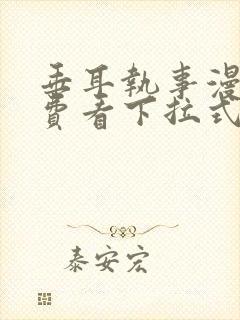 垂耳執事漫
費看下拉式
泰安宏